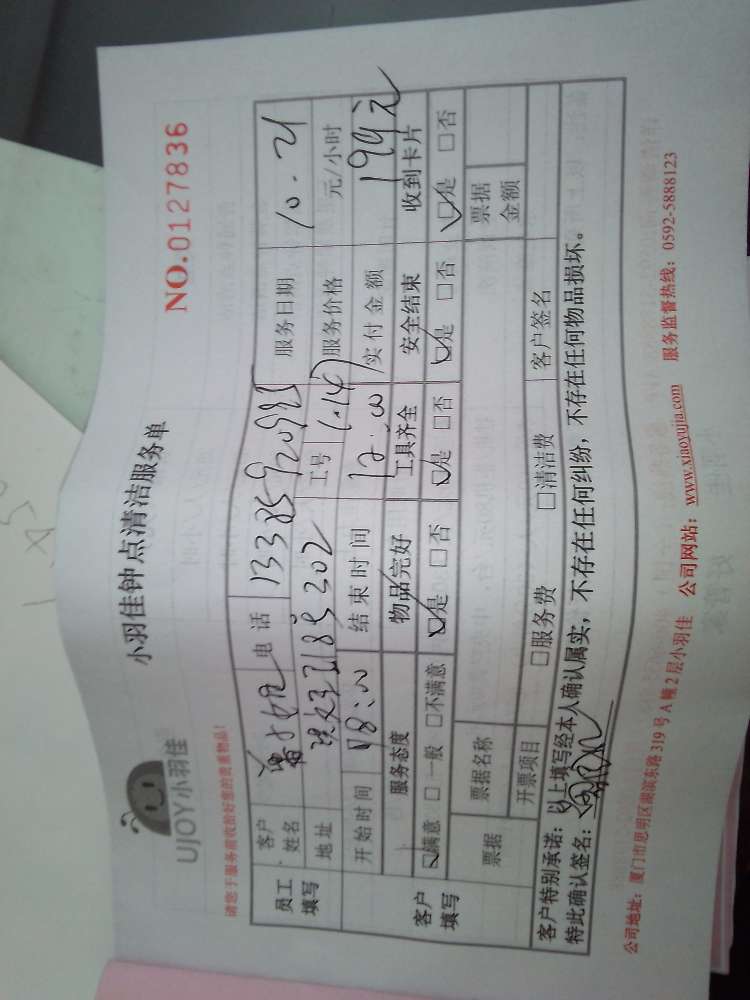 UJOY小羽佳
小羽佳钟点清洁服务单
NO.0127836
请您于服务前收拾好您的贵重物品!
员工填写
客户姓名 电话 服务日期 10.21
地址 202 工号 服务价格 元/小时
开始时间 18:00 结束时间 实付金额
客户填写
服务态度 物品完好 工具齐全 安全结束 收到卡片
☑满意 □一般 □不满意 ☑是 □否 ☑是 □否 ☑是 □否 ☑是 □否
票据 票据名称 票据金额
开票项目 □服务费 □清洁费 客户签名
客户特别承诺:以上填写经本人确认属实,不存在任何纠纷,不存在任何物品损坏。
特此确认签名:
公司地址:厦门市思明区湖滨东路319号A幢2层小羽佳 公司网站:www.xiaoyujia.com 服务监督热线:0592-5888123